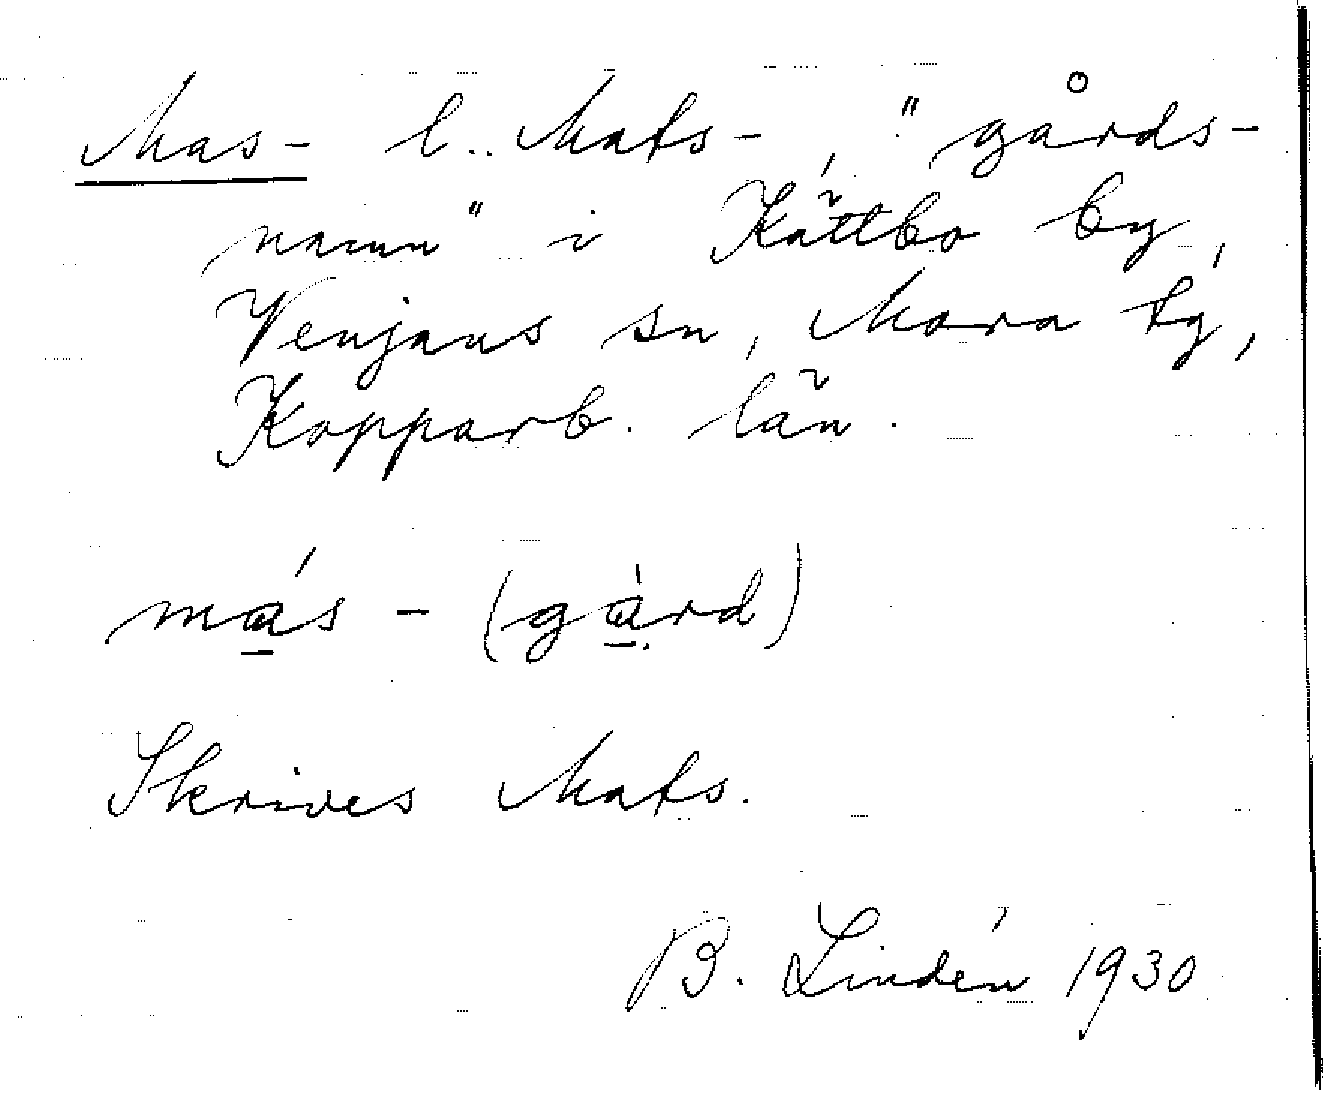 Mas- l. Mats-, "gårds-
namn" i Kättbo by,
Venjans sn, Mora tg,
Kopparb. län.
má̱s - (gà̱rd)
Skrives Mats.
B. Lindén 1930